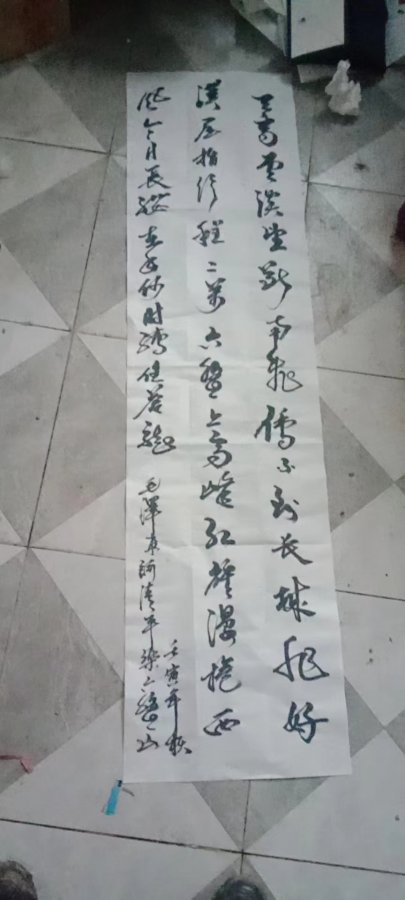 天高雲淡望断南飛雁不到长城非好
漢屈指行程二万六盤上高峰红旗漫捲西
风今日长缨在手何时缚住苍龍 毛澤東词清平樂六盤山
壬寅年秋